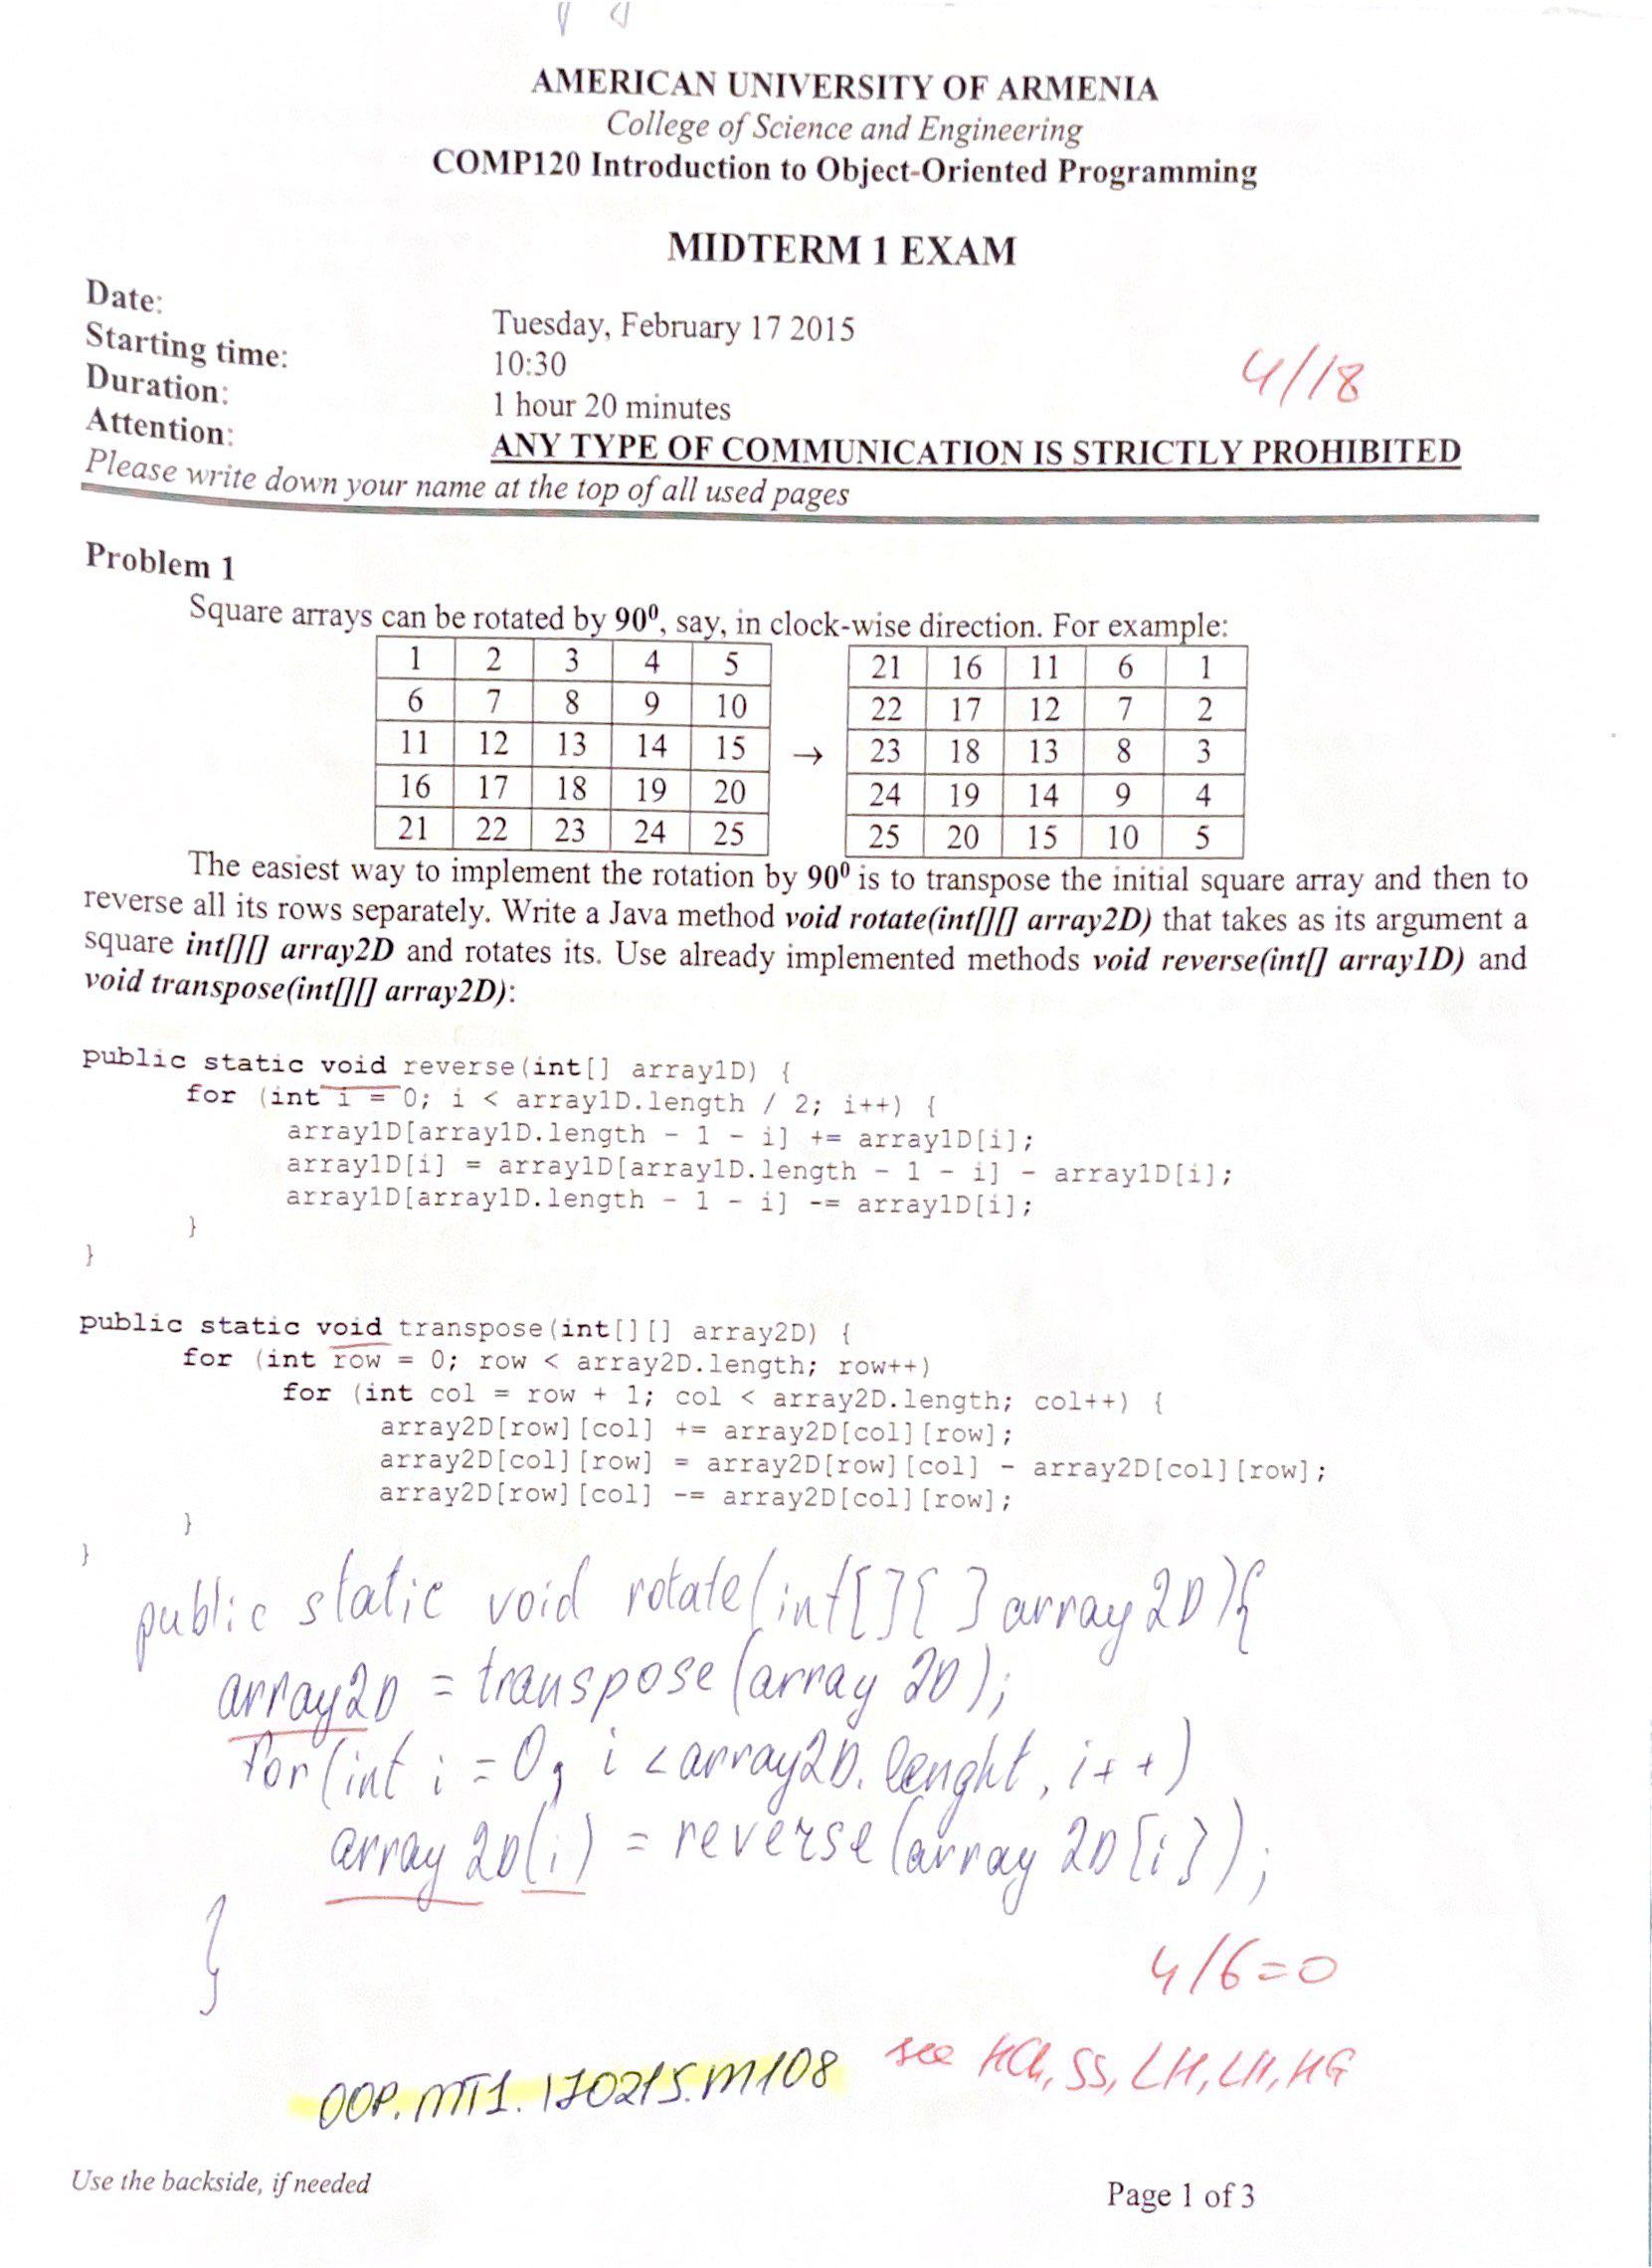 AMERICAN UNIVERSITY OF ARMENIA
College of Science and Engineering
COMP120 Introduction to Object-Oriented Programming
MIDTERM 1 EXAM
Date: Tuesday, February 17 2015
Starting time: 10:30
Duration: 1 hour 20 minutes
4/18
Attention: ANY TYPE OF COMMUNICATION IS STRICTLY PROHIBITED
Please write down your name at the top of all used pages
Problem 1
Square arrays can be rotated by 90⁰, say, in clock-wise direction. For example:
1 2 3 4 5 21 16 11 6 1
6 7 8 9 10 22 17 12 7 2
11 12 13 14 15 → 23 18 13 8 3
16 17 18 19 20 24 19 14 9 4
21 22 23 24 25 25 20 15 10 5
The easiest way to implement the rotation by 90⁰ is to transpose the initial square array and then to
reverse all its rows separately. Write a Java method void rotate(int[][] array2D) that takes as its argument a
square int[][] array2D and rotates its. Use already implemented methods void reverse(int[] array1D) and
void transpose(int[][] array2D):
public static void reverse(int[] array1D) {
for (int i = 0; i < array1D.length / 2; i++) {
array1D[array1D.length - 1 - i] += array1D[i];
array1D[i] = array1D[array1D.length - 1 - i] - array1D[i];
array1D[array1D.length - 1 - i] -= array1D[i];
}
}
public static void transpose(int[][] array2D) {
for (int row = 0; row < array2D.length; row++)
for (int col = row + 1; col < array2D.length; col++) {
array2D[row][col] += array2D[col][row];
array2D[col][row] = array2D[row][col] - array2D[col][row];
array2D[row][col] -= array2D[col][row];
}
}
public static void rotate(int[][] array2D){
array2D = transpose(array 2D);
for(int i = 0, i < array2D.lenght, i++)
array 2D(i) = reverse(array 2D[i]);
}
4/6=0
see HCh, SS, LH, LH, HG
OOP.MT1.170215.M108
Use the backside, if needed
Page 1 of 3